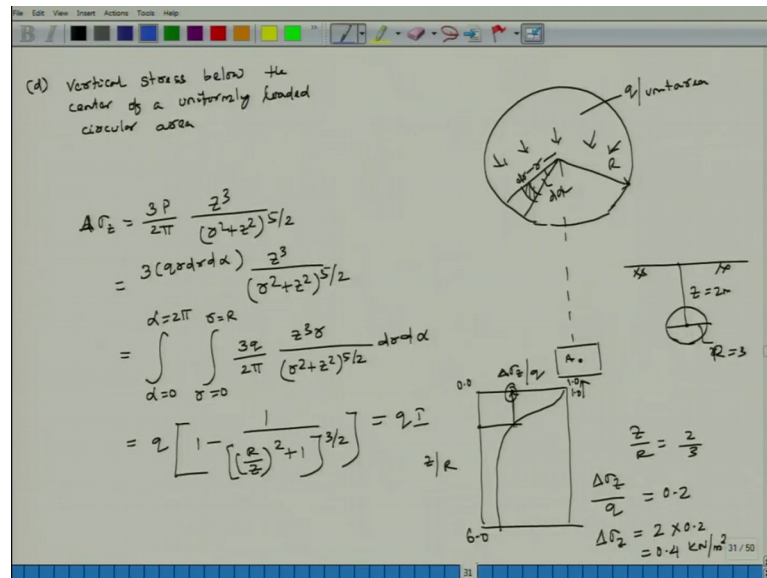 File Edit View Insert Actions Tools Help
B I
(d) Vertical stress below the
center of a uniformly loaded
circular area
q/unitarea
dr r R
dα
Δσz = 3P/2π z³/(r²+z²)^5/2
= 3(qrdrdα) z³/(r²+z²)^5/2
α=2π r=R
= ∫ ∫ 3q/2π z³r/(r²+z²)^5/2 drdα
α=0 r=0
= q [1 - 1/[(R/z)²+1]^3/2] = qI
z=2m
R=3
A.
Δσz/q
0.0 1.0
1.0
z/R
6.0
z/R = 2/3
Δσz/q = 0.2
Δσz = 2×0.2
= 0.4 KN/m²
31/50
31